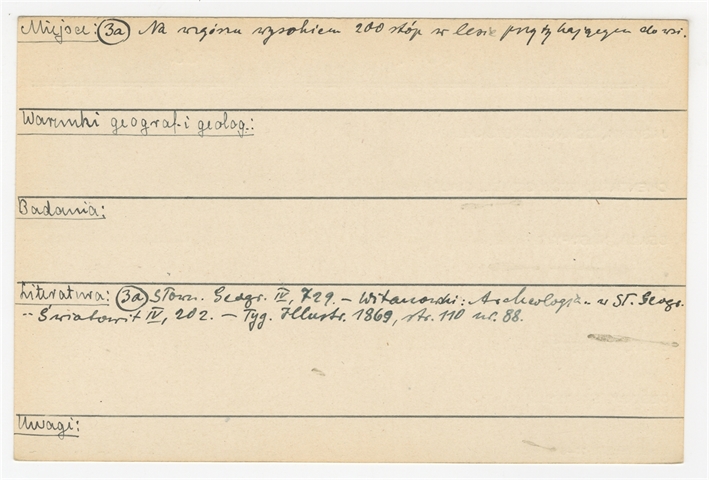 Miejsce: 3a Na wzgórzu wysokiem 200 stóp w lesie przytykającym do wsi.
Warunki geograf. i geolog.:
Badania:
Literatura: 3a Słown. Geogr. IV, 729. – Witanowski: Archeologja w Sł. Geogr.
– Światowit IV, 202. – Tyg. Illustr. 1869, str. 110 nr. 88.
Uwagi: